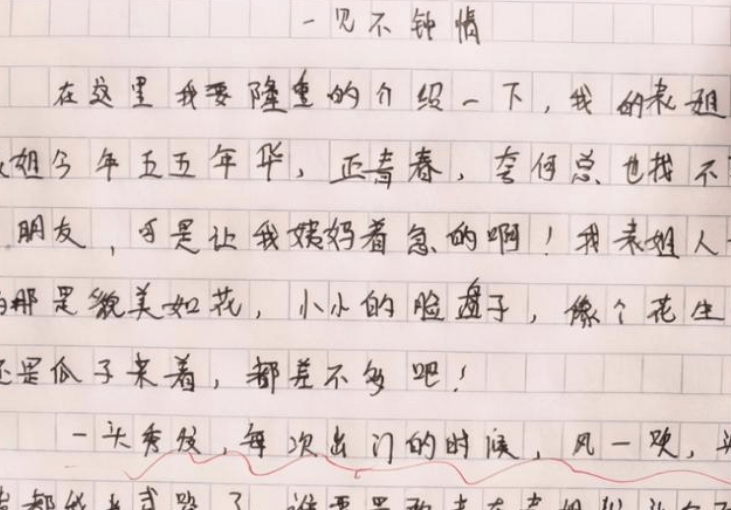 一见不钟情
在这里我要隆重的介绍一下，我的表姐
姐今年五五年华，正青春，奈何总也找不
朋友，可是让我姨妈着急的啊！我表姐人
那是貌美如花，小小的脸盘子，像个花生
还是瓜子来着，都差不多吧！
一头秀发，每次出门的时候，风一吹，